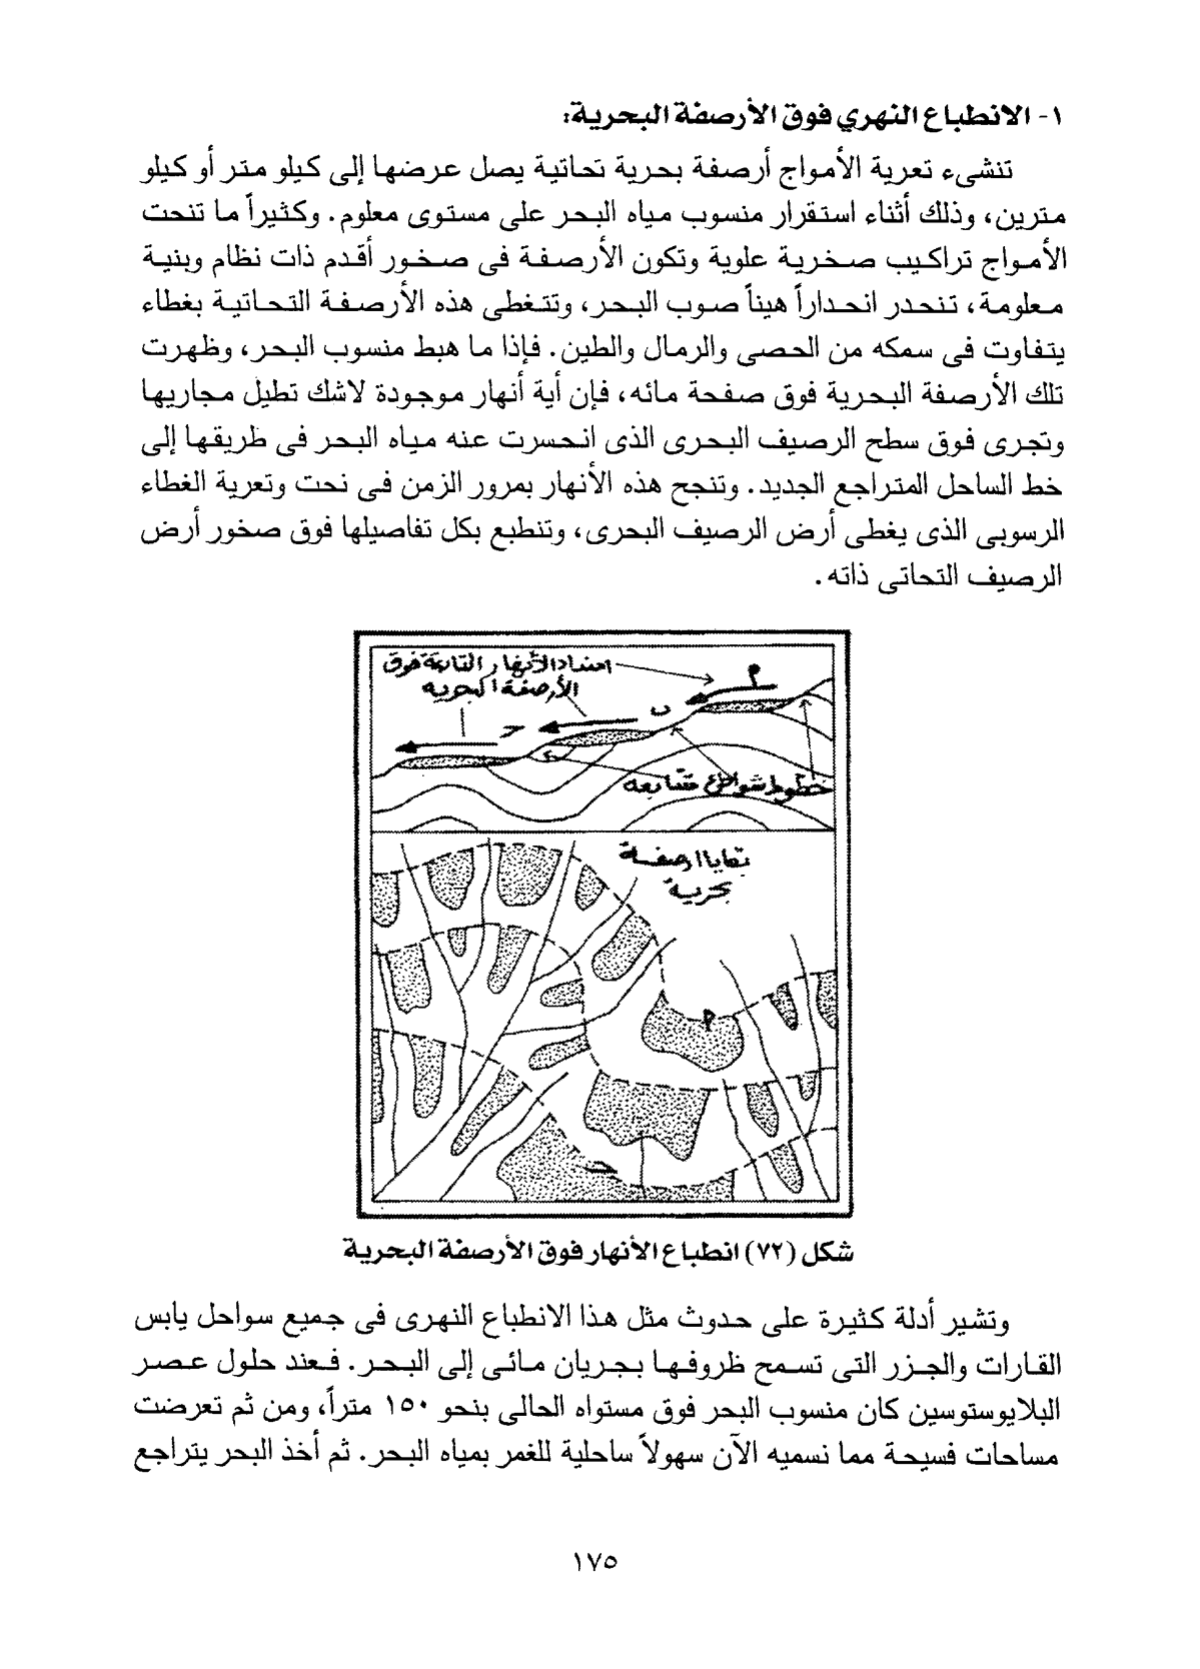 ١- الانطباع النهري فوق الأرصفة البحرية:
تنشىء تعرية الأمواج أرصفة بحرية تحاتية يصل عرضها إلى كيلو متر أو كيلو
مترين، وذلك أثناء استقرار منسوب مياه البحر على مستوى معلوم. وكثيراً ما تنحت
الأمواج تراكيب صخرية علوية وتكون الأرصفة فى صخور أقدم ذات نظام وبنية
معلومة، تنحدر انحداراً هيناً صوب البحر، وتتغطى هذه الأرصفة التحاتية بغطاء
يتفاوت فى سمكه من الحصى والرمال والطين. فإذا ما هبط منسوب البحر، وظهرت
تلك الأرصفة البحرية فوق صفحة مائه، فإن أية أنهار موجودة لاشك تطيل مجاريها
وتجرى فوق سطح الرصيف البحرى الذى انحسرت عنه مياه البحر فى طريقها إلى
خط الساحل المتراجع الجديد. وتنجح هذه الأنهار بمرور الزمن فى نحت وتعرية الغطاء
الرسوبى الذى يغطى أرض الرصيف البحرى، وتنطبع بكل تفاصيلها فوق صخور أرض
الرصيف التحاتى ذاته.
امتداد الأنهار التابعة فوق
الأرصفة البحرية
م
ب
ح
خطوط شواطئ متتابعه
بقايا ارصفة
بحرية
م
ح
شكل (٧٢) انطباع الأنهار فوق الأرصفة البحرية
وتشير أدلة كثيرة على حدوث مثل هذا الانطباع النهرى فى جميع سواحل يابس
القارات والجزر التى تسمح ظروفها بجريان مائى إلى البحر. فعند حلول عصر
البلايوستوسين كان منسوب البحر فوق مستواه الحالى بنحو ١٥٠ متراً، ومن ثم تعرضت
مساحات فسيحة مما نسميه الآن سهولاً ساحلية للغمر بمياه البحر. ثم أخذ البحر يتراجع
١٧٥